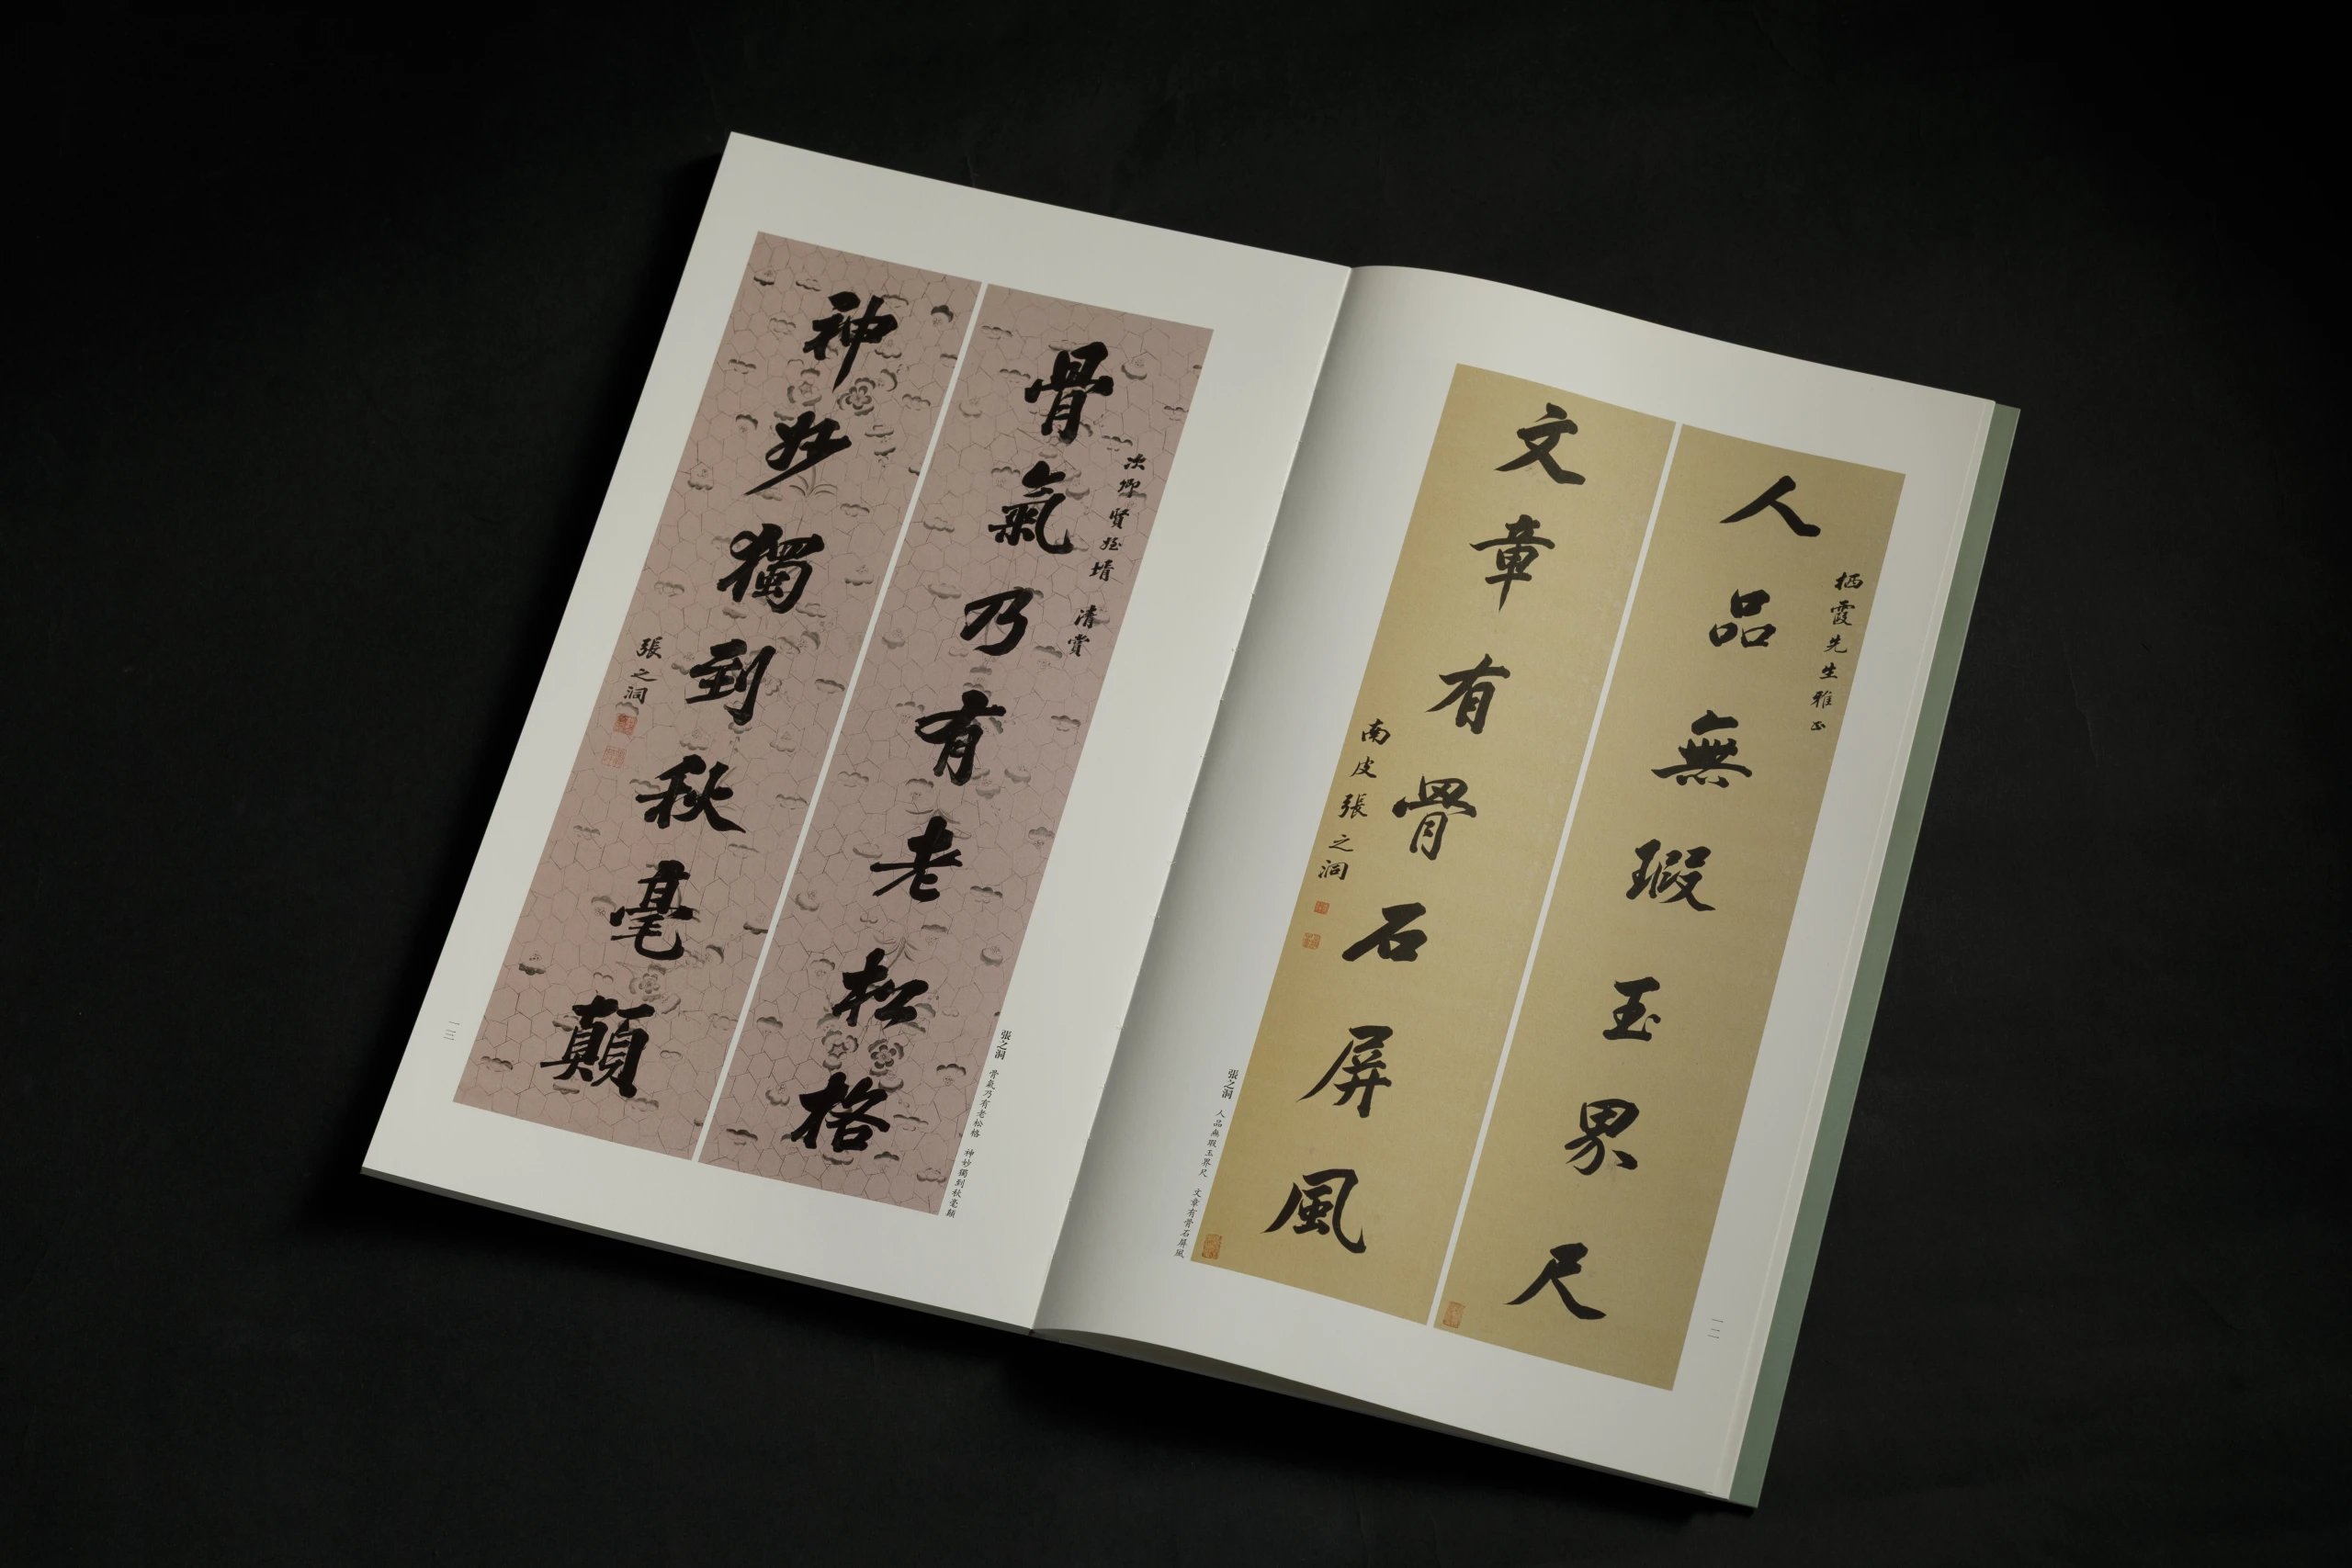 人品無瑕玉界尺
栖霞先生雅正
文章有骨石屏風
南皮張之洞
張之洞 人品無瑕玉界尺 文章有骨石屏風
一二
骨氣乃有老松格
次卿賢姪壻 清賞
神妙獨到秋毫顛
張之洞
張之洞 骨氣乃有老松格 神妙獨到秋毫顛
一三